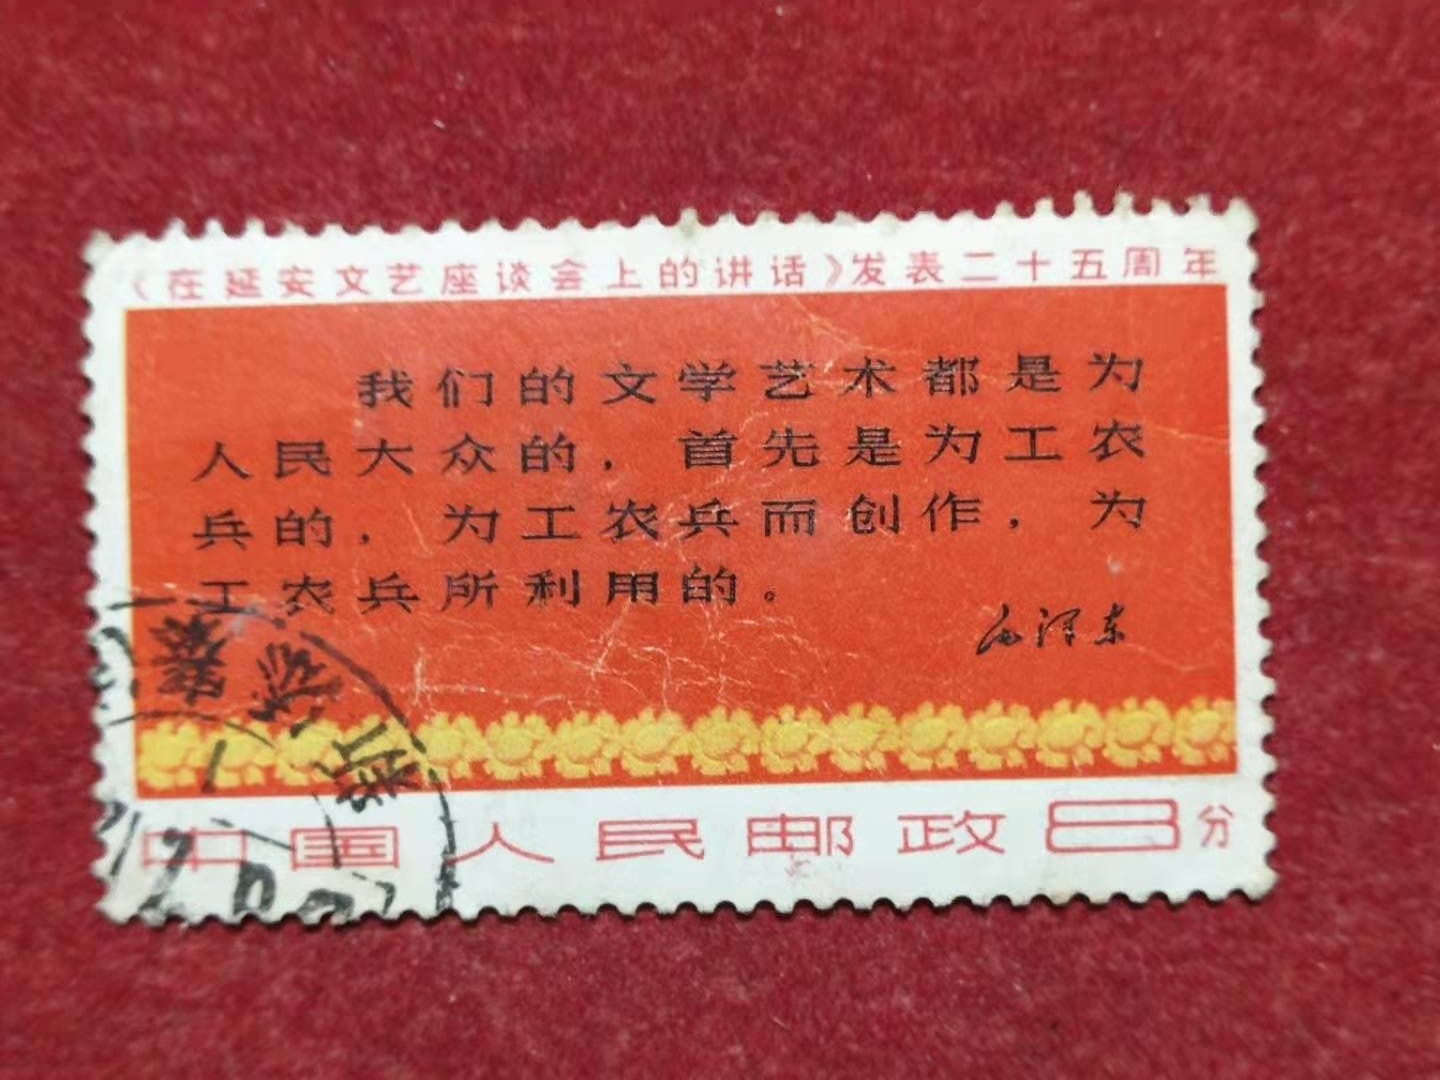 《在延安文艺座谈会上的讲话》发表二十五周年
我们的文学艺术都是为
人民大众的，首先是为工农
兵的，为工农兵而创作，为
工农兵所利用的。
毛泽东
中国人民邮政8分